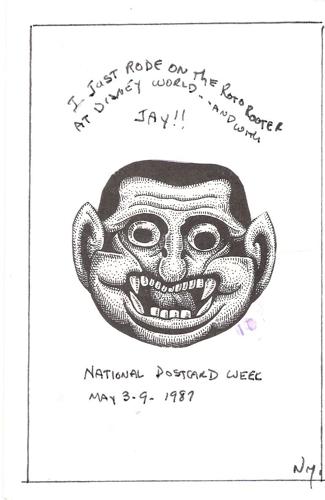 I JUST RODE ON THE ROTO ROOTER
AT DISNEY WORLD... AND WITH
JAY!!
10
NATIONAL POSTCARD WEEK
MAY 3-9- 1987
NM.